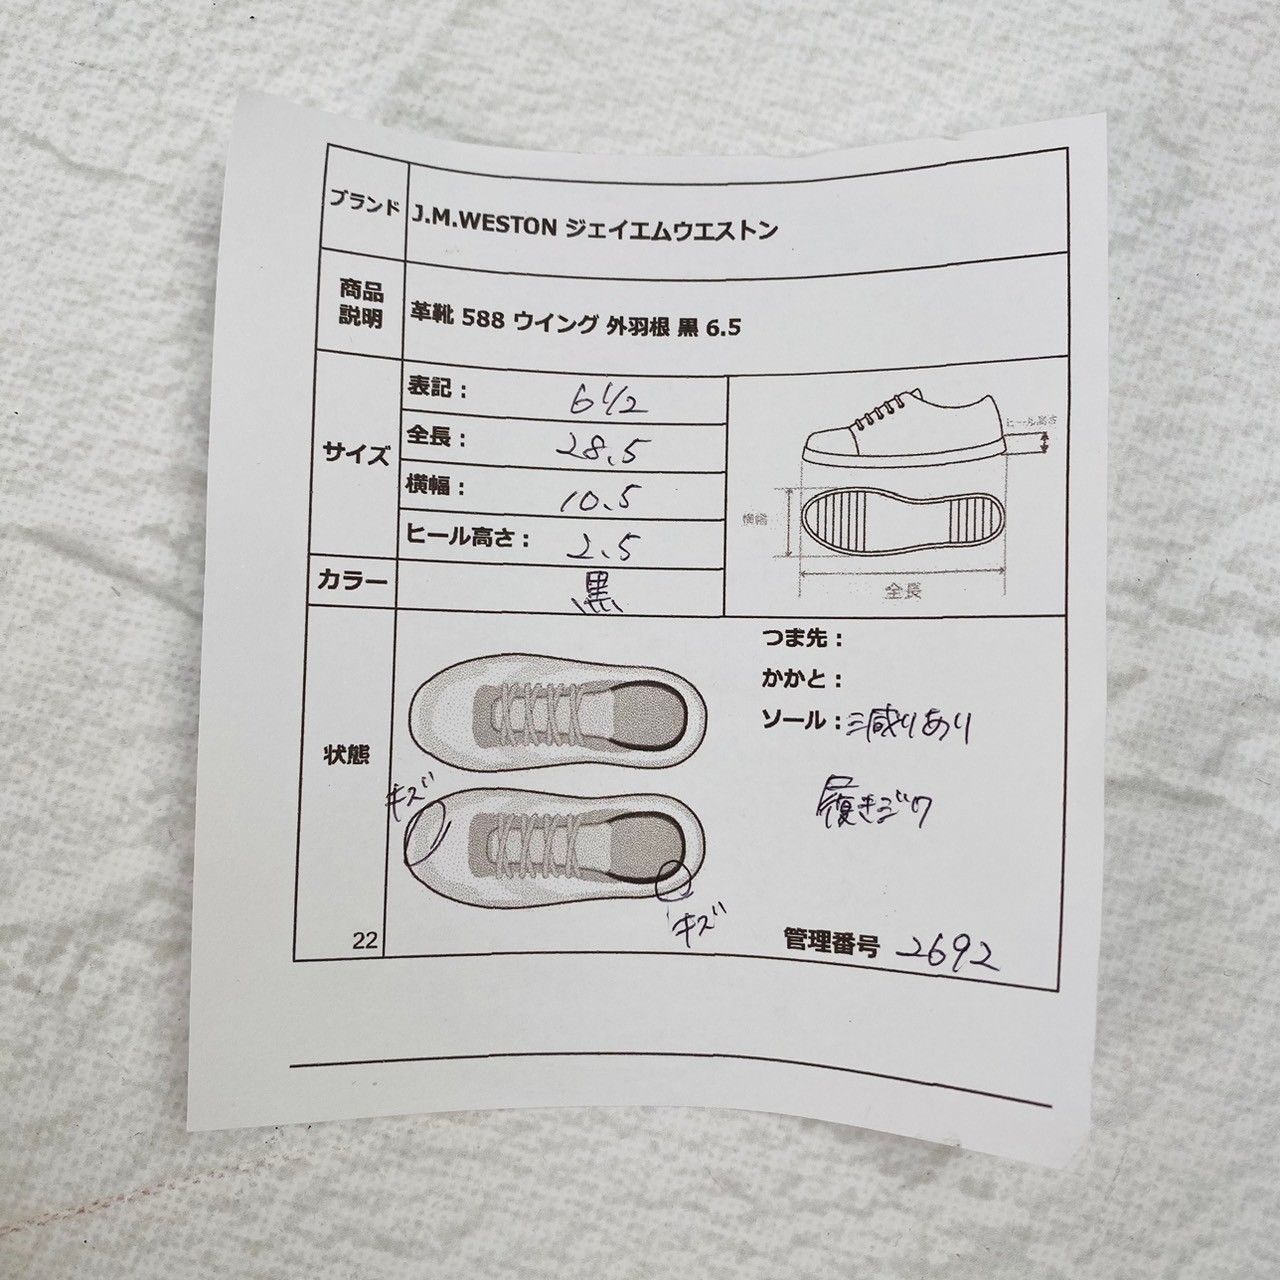 ブランド J.M.WESTON ジェイエムウエストン
商品説明 革靴 588 ウイング 外羽根 黒 6.5
サイズ
表記： 6 1/2
全長： 28.5
横幅： 10.5
ヒール高さ： 2.5
ヒール高さ
横幅
全長
カラー 黒
状態
つま先：
かかと：
ソール： 減りあり
キズ
履きジワ
キズ
22
管理番号 2692